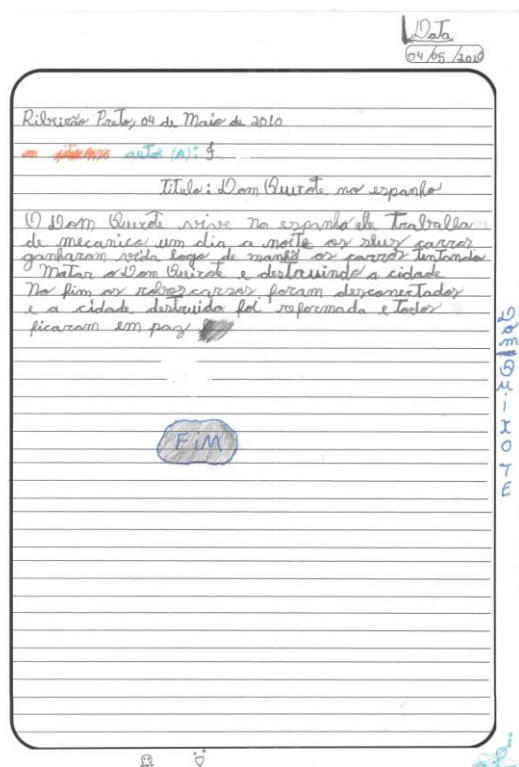 Data
04/05/2010
Ribeirão Preto, 04 de Maio de 2010
autor (A): J
Título: Dom Quixote no espanho
O Dom Quixote vive no espanho ele Trabalha
de mecanico um dia a noite os seus carros
ganharam vida logo de manhã os carros tentando
Matar o Dom Quixote e destruindo a cidade
No fim os robos carros foram desconectados
e a cidade destruida foi reformada e todos
ficaram em paz
FiM
DOM QUIXOTE